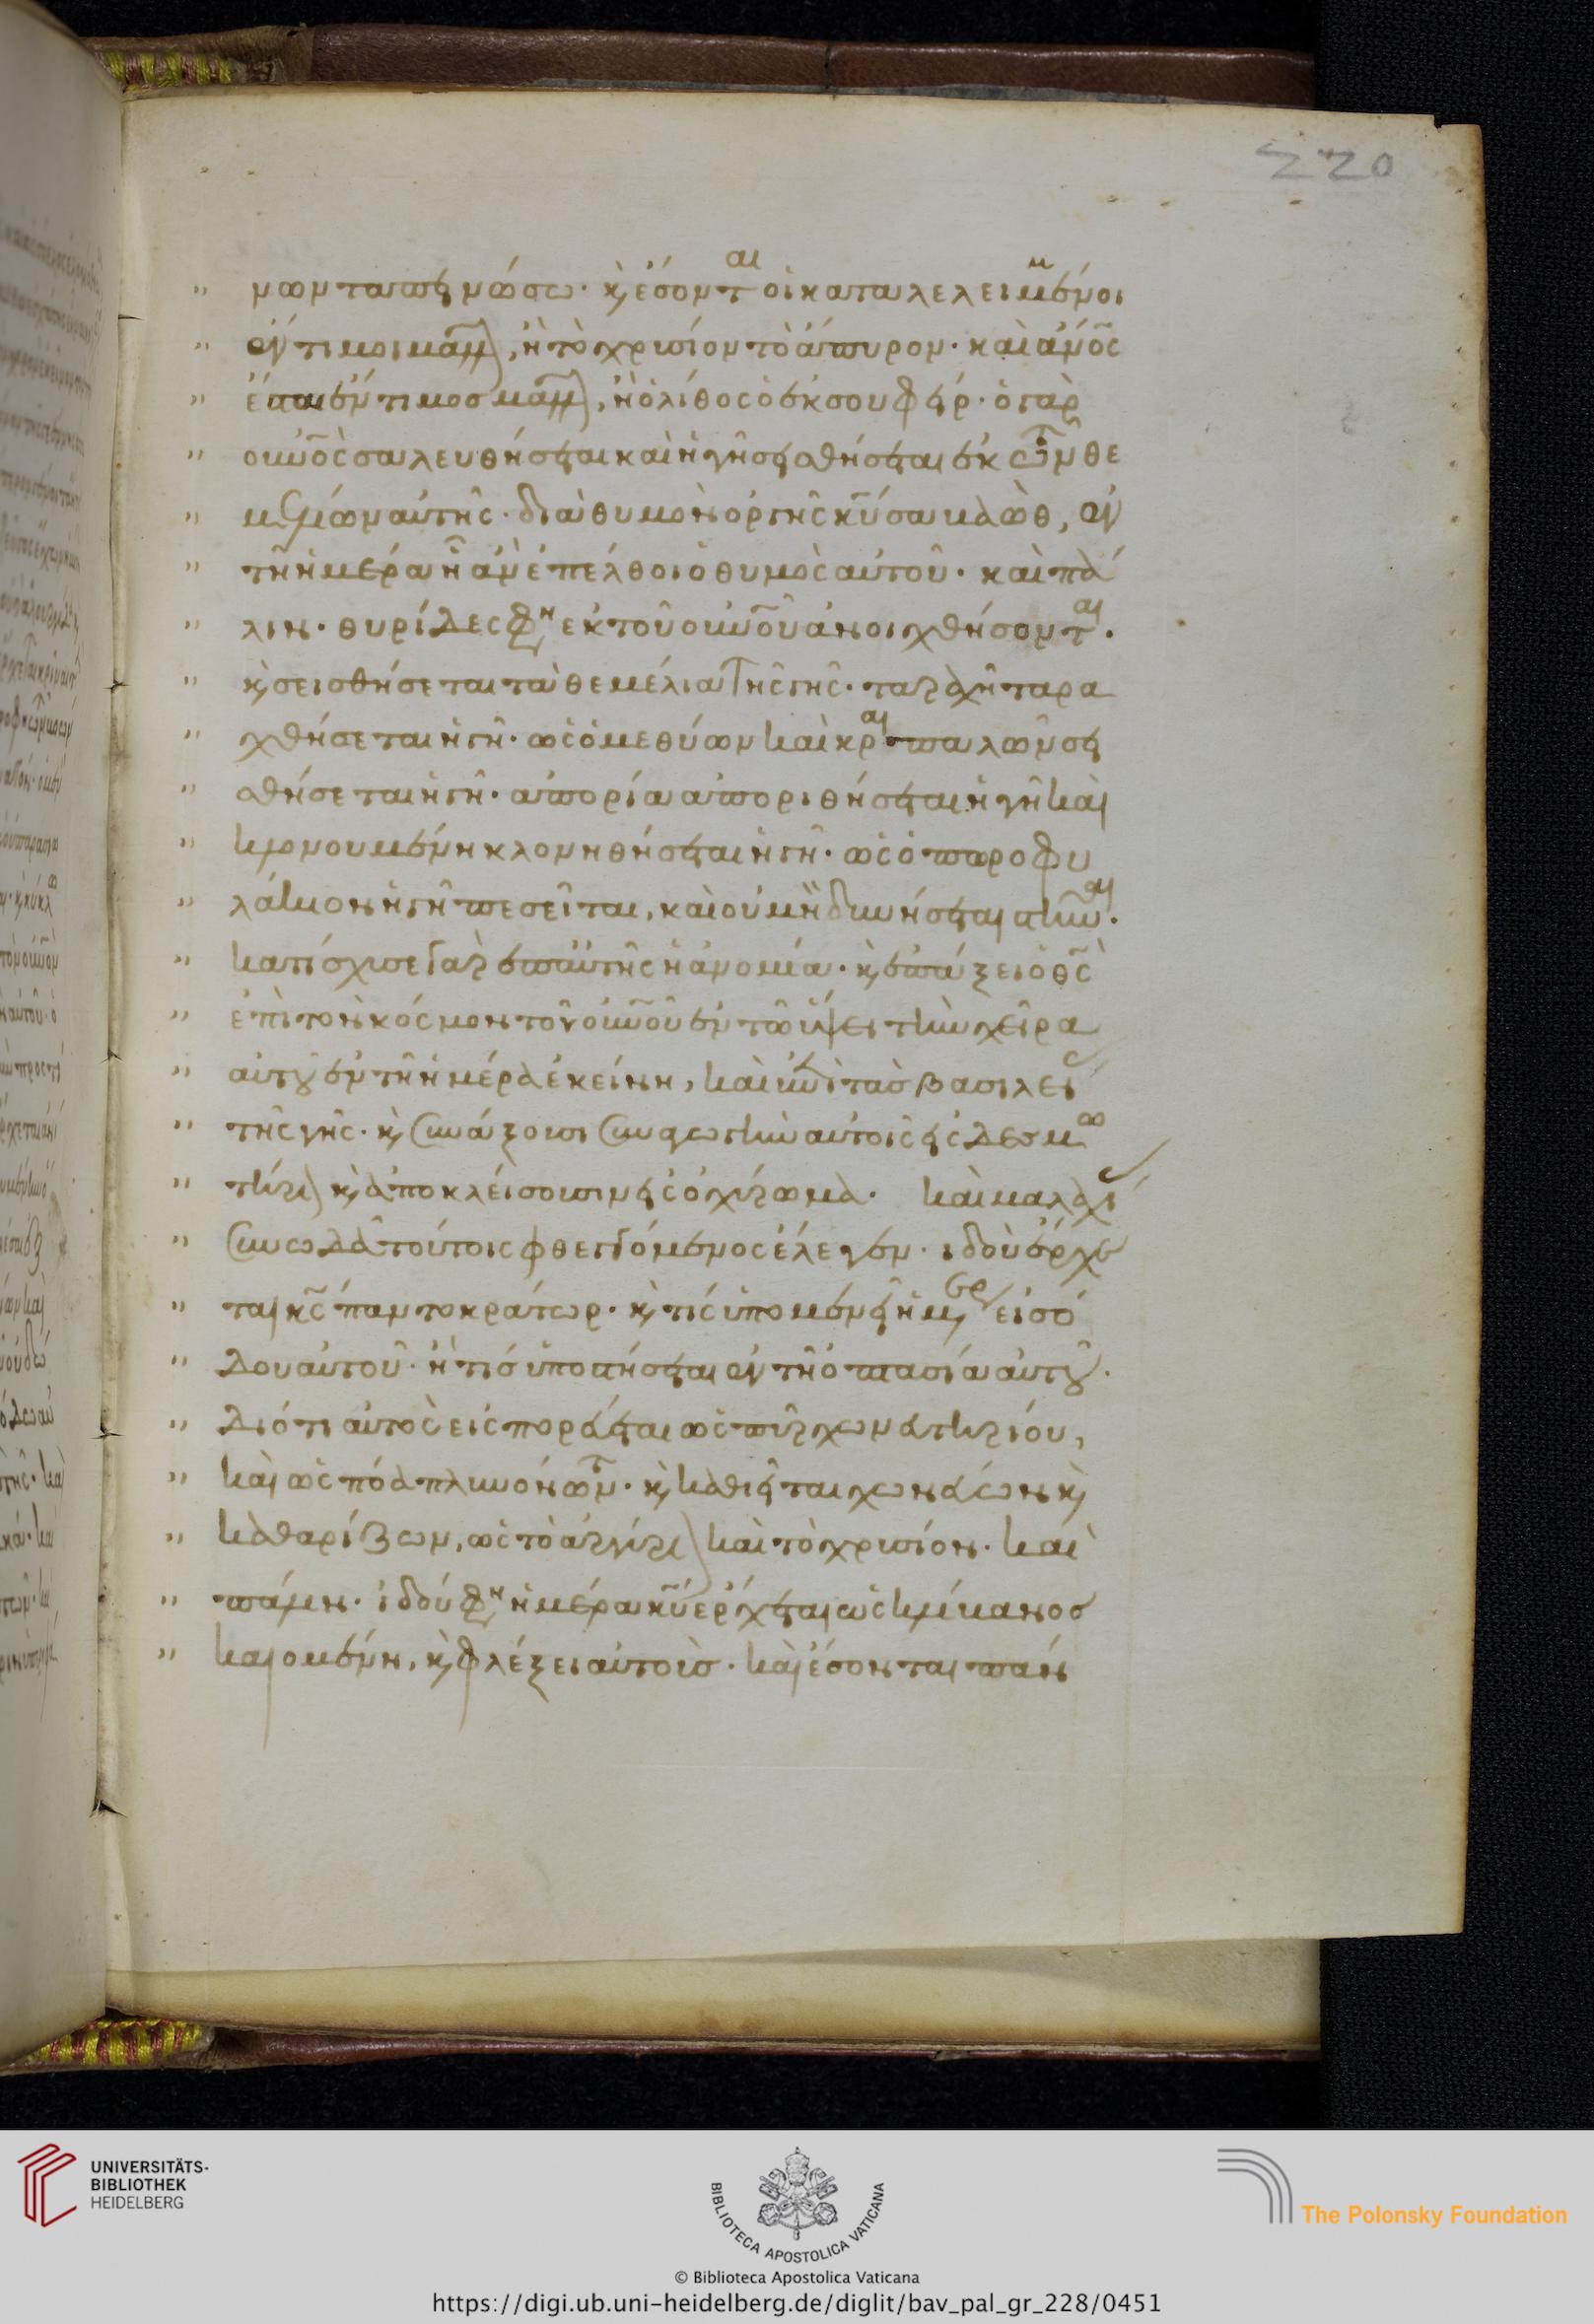 220
νων ταπεινώσω· κ, ἔσονται οἱ καταλελειμμένοι
ἔντιμοι μᾶλλον, ἢ τὸ χρυσίον τὸ ἄπυρον· καὶ ἄνος
ἔσται ἔντιμος μᾶλλον, ἢ ὁ λίθος ὁ ἐκ σουφείρ· ὁ γὰρ
οὐνος σαλευθήσεται καὶ ἡ γῆ σεισθήσεται ἐκ τῶν θε
μελίων αὐτῆς· διὰ θυμὸν ὀργῆς κυ σαβαώθ, ἐν
τῇ ἡμέρα ἧ ἂν ἐπέλθοι ὁ θυμὸς αὐτοῦ· καὶ πά
λιν· θυρίδες φην ἐκ τοῦ οὐνου ἀνοιχθήσονται·
κ, σεισθήσεται τὰ θεμέλια τῆς γῆς· ταραχῆ ταρα
χθήσεται ἡ γῆ· ὡς ὁ μεθύων καὶ κραιπαλῶν σει
σθήσεται ἡ γῆ· ἀπορία ἀπορηθήσεται ἡ γῆ καὶ
κλονουμένη κλονηθήσεται ἡ γῆ· ὡς ὀπωροφυ
λάκιον ἡ γῆ πεσεῖται, καὶ οὐ μὴ δύνήσεται στῆναι·
κατίσχυσε γὰρ ἐπ αὐτῆς ἡ ἀνομία· κ, ἐπάξει ὁ θς
ἐπὶ τὸν κόσμον τοῦ οὐνου ἐν τῶ ὕψει τὴν χεῖρα
αὐτοῦ ἐν τῆ ἡμέρα ἐκείνη, καὶ ἐπὶ τὰς βασιλείας
τῆς γῆς· κ, συνάξουσι συναγωγὴν αὐτοῖς εἰς δεσμω
τήριον κ, ἀποκλείσουσιν εἰς ὀχύρωμα· καὶ μαλαχίας
συνωδὰ τούτοις φθεγγόμενος ἔλεγεν· ἰδοὺ ἔρχε
ται κς παντοκράτωρ· κ, τίς ὑπομένει ἡμέραν εἰσό
δου αὐτοῦ· ἢ τίς ὑποστήσεται ἐν τῆ ὀπτασία αὐτοῦ·
διότι αὐτὸς εἰσπορεύεται ὡς πῦρ χωνευτηρίου,
καὶ ὡς πόα πλυνόντων· κ, καθιεῖται χωνεύων κ,
καθαρίζων, ὡς τὸ ἀργύριον καὶ τὸ χρυσίον· καὶ
πάλιν· ἰδού φην ἡμέρα κυ ἔρχεται ὡς κλίβανος
καιομένη, κ, φλέξει αὐτοὺς· καὶ ἔσονται πάν
UNIVERSITÄTS-
BIBLIOTHEK
HEIDELBERG
BIBLIOTECA APOSTOLICA VATICANA
The Polonsky Foundation
© Biblioteca Apostolica Vaticana
https://digi.ub.uni-heidelberg.de/diglit/bav_pal_gr_228/0451